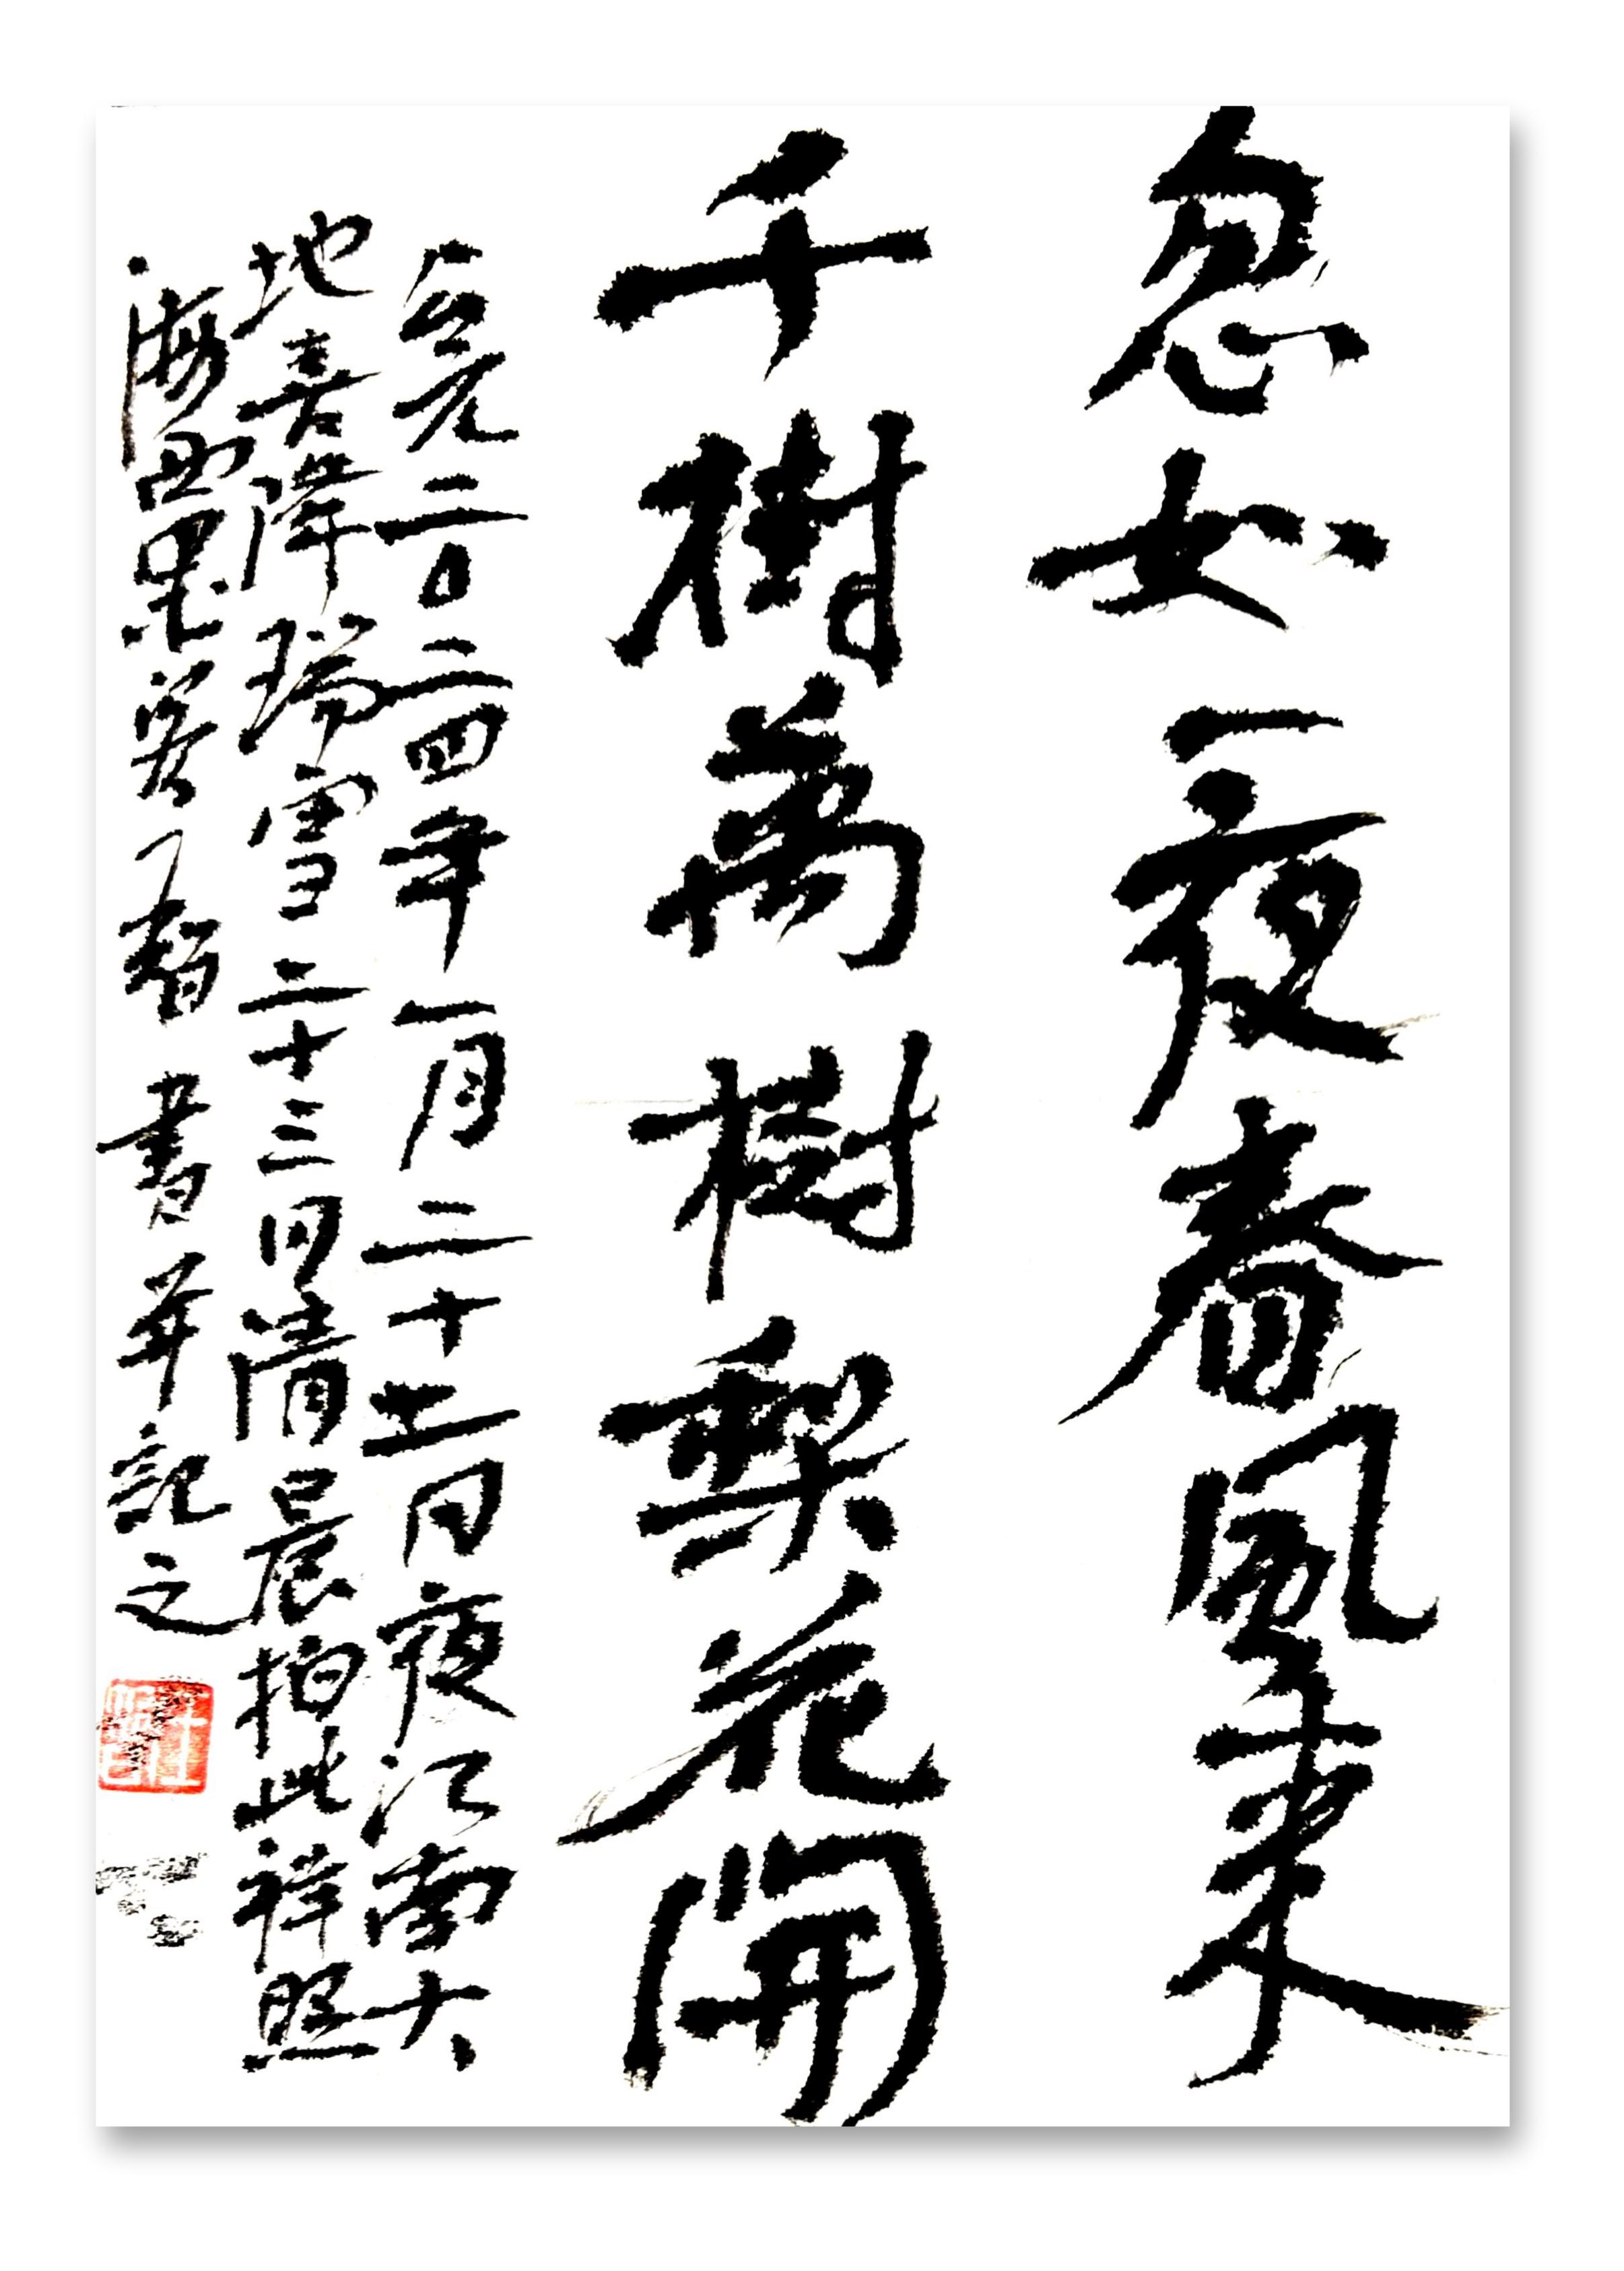 忽如一夜春風来
千樹萬樹梨花開
公元二〇二四年一月二十二日夜江南大
地喜降瑞雪二十三日清晨拍此祥照
海西墨客 書并記之